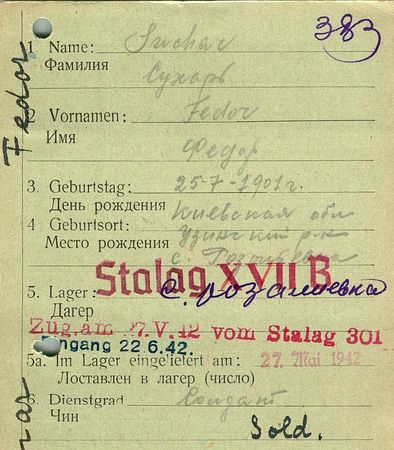 383
1 Name: Suchar
Фамилия
Сухарь
2 Vornamen: Fedor
Имя
Федор
3. Geburtstag: 25-7-1901г.
День рождения
4 Geburtsort: Киевская обл
Место рождения Узинский р-н
с.
Stalag XVII B
5. Lager: с. Розалиевка
Лагерь
Zug. am 27.V.42 vom Stalag 301
Eingang 22.6.42.
5a. Im Lager eingeliefert am: 27. Mai 1942
Доставлен в лагерь (число)
6. Dienstgrad Солдат
Чин
Sold.
Fedor